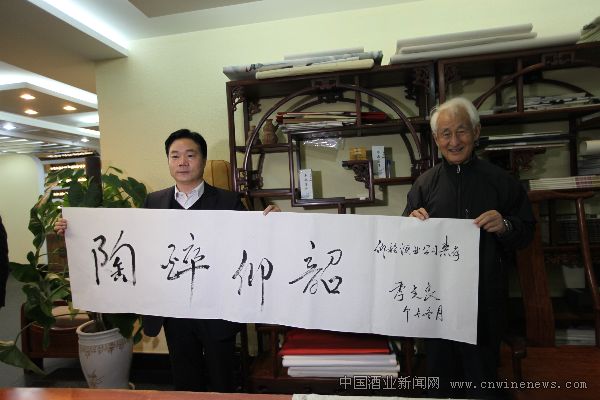 陶醉仰韶
仰韶酒业公司惠存
季克良
中国酒业新闻网 www.cnwinenews.com